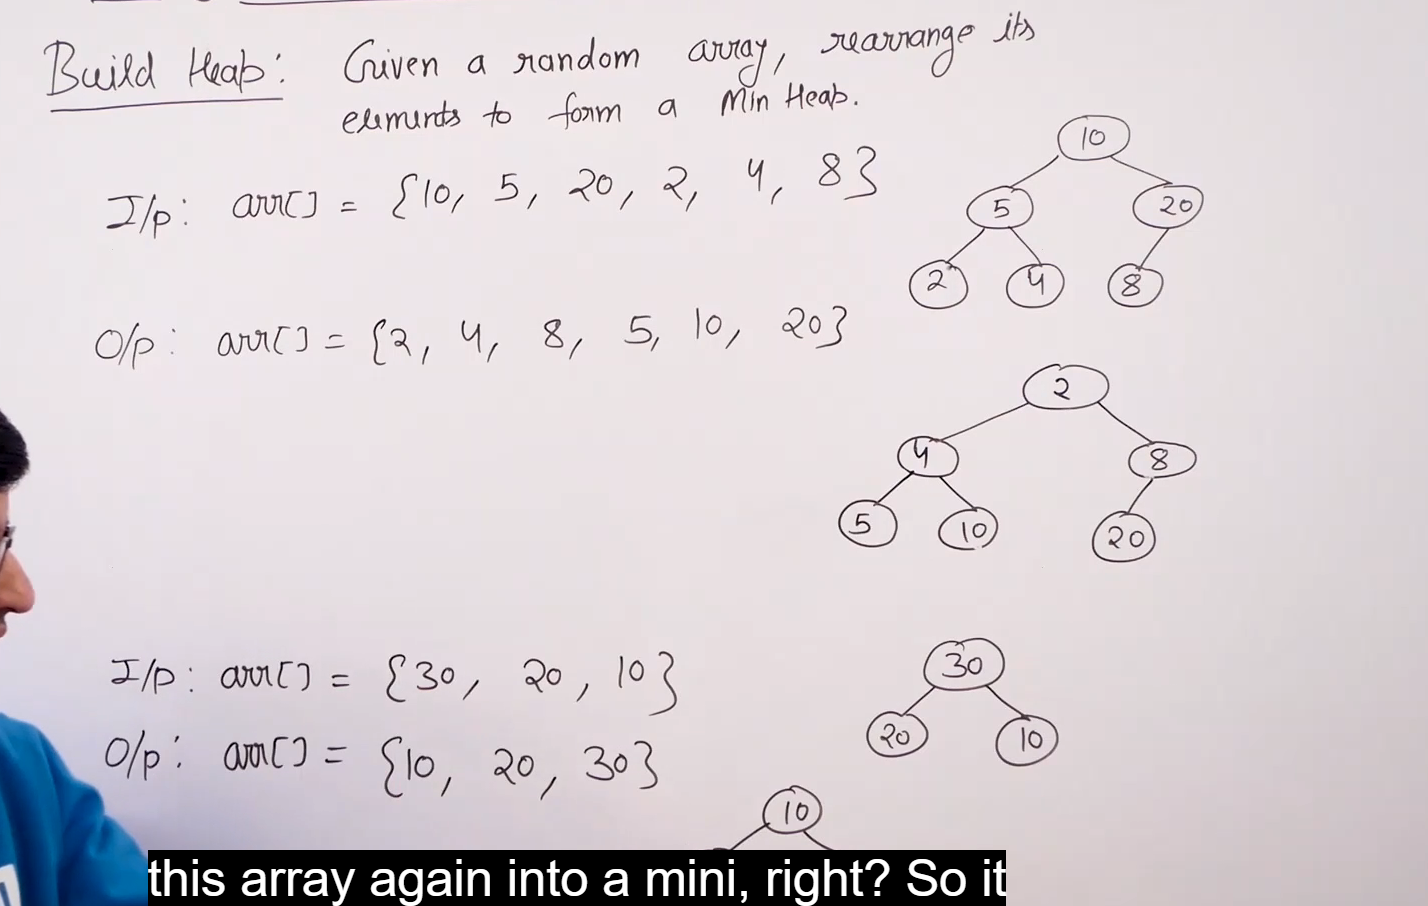 Build Heap: Given a random array, rearrange its
elements to form a Min Heap.
I/p: arr[] = {10, 5, 20, 2, 4, 8}
10
5 20
2 4 8
O/p: arr[] = {2, 4, 8, 5, 10, 20}
2
4 8
5 10 20
I/p: arr[] = {30, 20, 10}
30
20 10
O/p: arr[] = {10, 20, 30}
10
this array again into a mini, right? So it